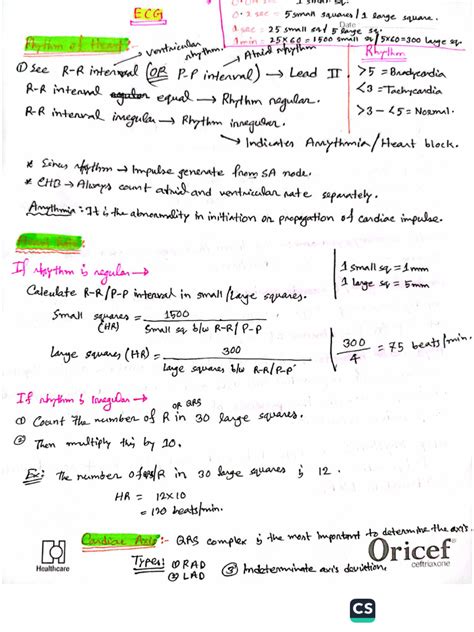 ECG
0.2 sec = 5 small squares / 1 large square.
1 sec = 25 small or 5 large sq.
Date
1 min = 25×60 = 1500 small sq / 5×60=300 large sq.
Rhythm of Heart:
ventricular rhythm.
Atrial rhythm
① See R-R interval (OR P-P interval) → Lead II
R-R interval equal → Rhythm regular.
R-R interval irregular → Rhythm irregular.
→ Indicates Arrythmia/Heart block.
Rhythm
>5 = Bradycardia
<3 = Tachycardia
>3 - <5 = Normal.
* Sinus rhythm → Impulse generate from SA node.
* CHB → Always count atrial and ventricular rate separately.
Arrythmia :- It is the abnormality in initiation or propagation of cardiac impulse.
If rhythm is regular →
Calculate R-R/P-P interval in small/Large squares.
1 small sq = 1mm
1 large sq = 5mm
Small squares (HR) = 1500 / Small sq b/w R-R/P-P
Large squares (HR) = 300 / Large squares b/w R-R/P-P
300/4 = 75 beats/min.
If rhythm is Irregular →
① Count the number of R or QRS in 30 large squares.
② Then multiply this by 10.
Ex: The number of R in 30 large squares is 12.
HR = 12×10
= 120 beats/min.
Cardiac Axis :- QRS complex is the most important to determine the axis.
Types: ① RAD
② LAD
③ Indeterminate axis deviation.
Healthcare
Oricef
ceftriaxone
CS